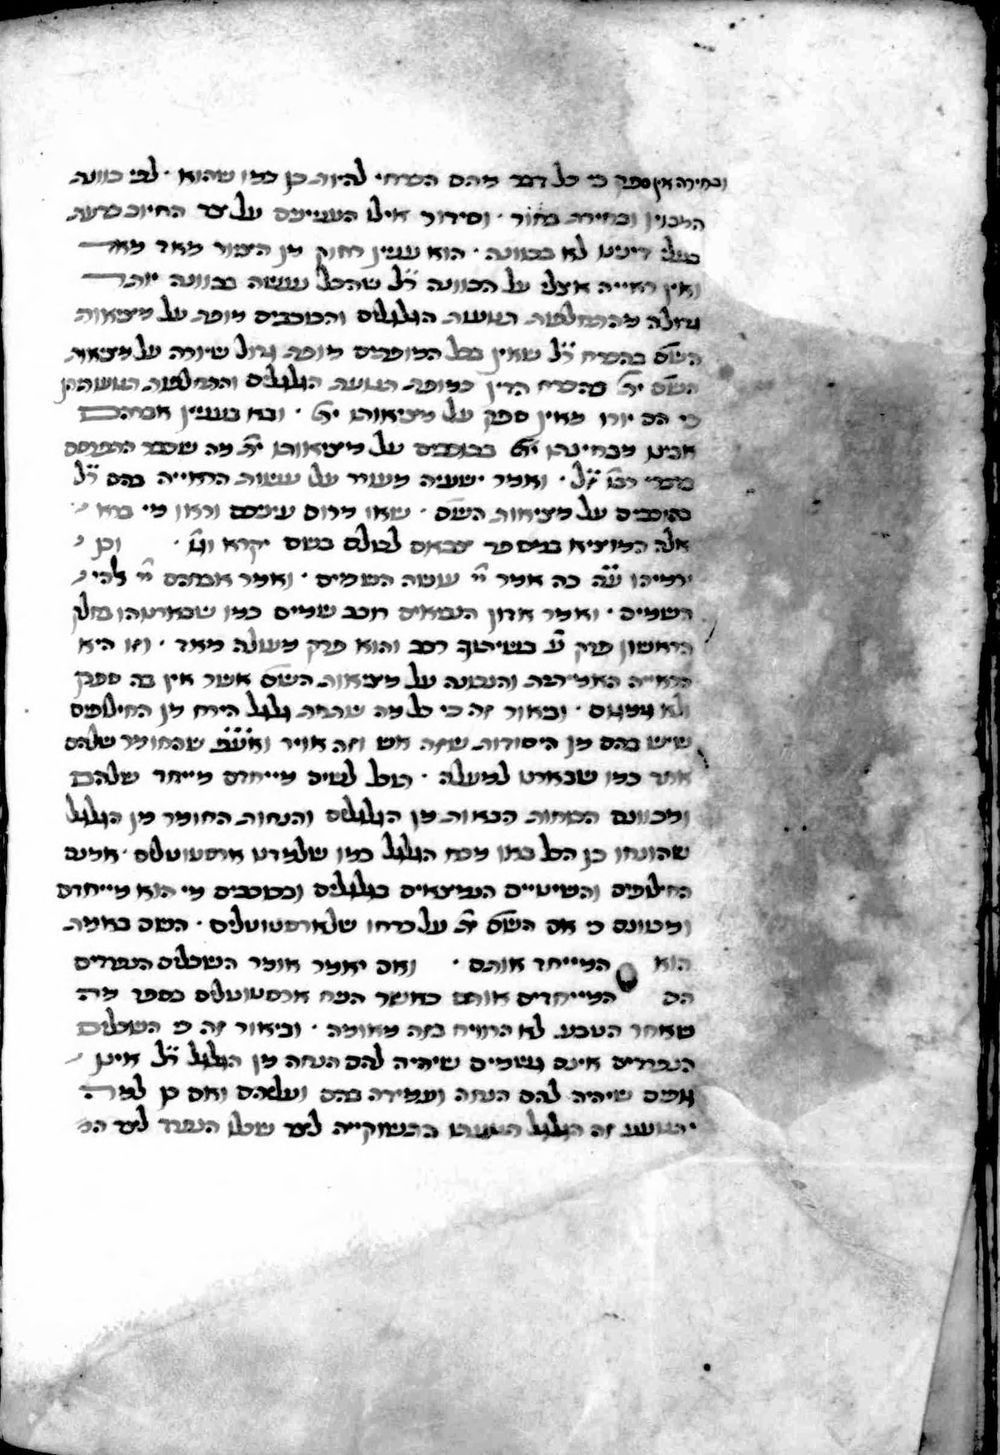 ובחירה אין ספק כי כל דבר מהם הכרחי להיות כן כמו שהוא · לפי כוונת
המכוין ובחירת בחור · וסידור אילו העניינים על צד החיוב כדעת
בעלי דיננו לא בכוונה · הוא עניין רחוק מן הציור מאד מאד
ואין ראייה אצלי על הכוונה ר״ל שהכל נעשה בכוונה יותר
גדולה מהתחלפות תנועת הגלגלים והכוכבים מופת על מציאות
השם בהכרח ר״ל שאין בכל המופתים מופת גדול שיורה על מציאות
השם ית׳ בהכרח הדין כמופת תנועת הגלגלים והתחלפות תנועתהן
כי הם יורו מאין ספק על מציאותו ית׳ · ובא בעניין אברהם
אבינו מבחינתו ית׳ בכוכבים על מציאותו ית׳ מה שכבר התפרסם
בדברי רבו׳ ז״ל · ואמר ישעיה מעורר על עשות הראייה בהם ר״ל
בהיכבים על מציאות השם · שאו מרום עיניכם וראו מי ברא
אלה המוציא במספר צבאם לכולם בשם יקרא וגו׳ · וכן
ירמיהו ע״ה כה אמר יי׳ עושה השמים · ואמר אברהם יי׳ להי
השמים · ואמר אדון הנביאים רוכב שמים כמו שבארנוהו בחלק
הראשון פרק ע׳ בשיתוף רכב והוא פרק מעולה מאד · וזו היא
הראייה האמיתית והנכונה על מציאות השם אשר אין בה ספק
ולא גמגום · וביאור זה כי כל מה שתחת גלגל הירח מן החילופים
שיש בהם מן היסודות שזה אש וזה אויר ואעפ״ שהחומר שלהם
אחד כמו שבארנו למעלה · תוכל לשים מייחדם מייחד שלהם
ומכוונם הכוחות הבאות מן הגלגלים והנחות החומר מן הגלגל
שהונחו כן הכל באו מכח הגלגל כמו שלמדנו ארסטוטלים · אמנם
החילופים והשינויים הנמצאים בגלגלים ובכוכבים מי הוא מייחדם
ומכוונם כי אם השם ית׳ על כרחו שלארסטוטלים · השם באמת
הוא המייחד אותם · ואם יאמר אומר השכלים הנפרדים
הם המייחדים אותם כאשר הניח ארסטוטלים בספר מה
שאחר הטבע לא הרויח בזה מאומה · וביאור זה כי השכלים
הנפרדים אינם גשמים שיהיה להם הנחה מן הגלגל ר״ל אינן
גופים שיהיה להם הנחה ועמידה בהם ועלאהם ואם כן למה
יתנועע זה הגלגל תנועתו התשוקייה לצד שכלו הנפרד לצד המ׳